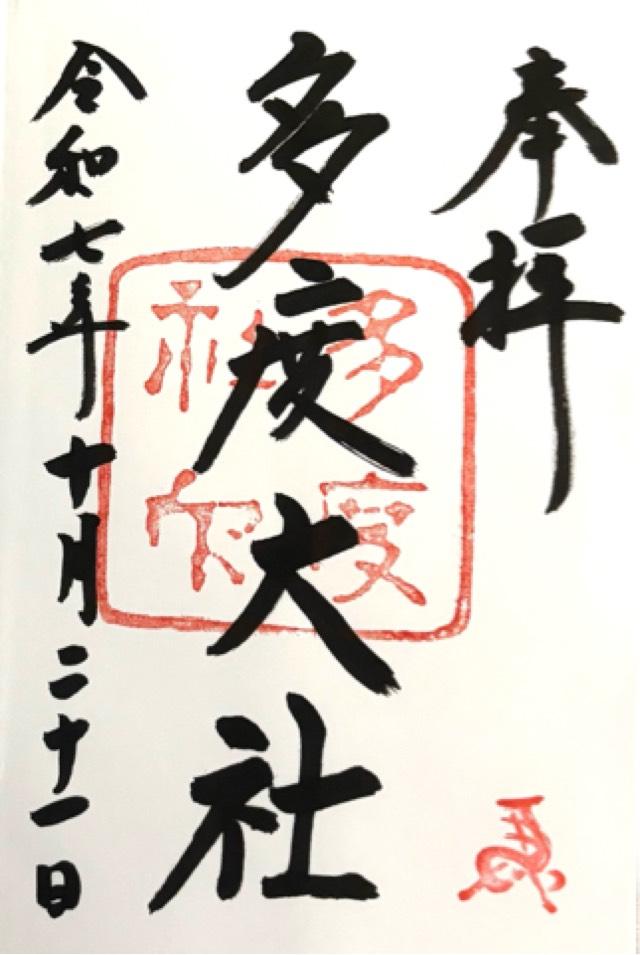 奉拝
多度大社
令和七年十月二十一日
多度
神社